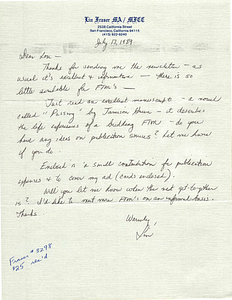 Lin Fraser MA / MFCC
2538 California Street
San Francisco, California 94115
(415) 922-9240
July 17, 1989
Dear Lou -
Thanks for sending me the newsletter - as
usual it's excellent & informative - there is so
little available for FTM's -
Just read an excellent manuscript - a novel
called "Passing" by - it describes
the life experiences of a budding FTM - do you
have any ideas on publication sources? Let me know
if you do.
Enclosed is a small contribution for publication
expenses & to cover my ad (cards enclosed).
Will you let me know when the next get-together
is? I'd like to meet more FTM's on an informal basis.
Thanks.
Warmly,
Lin
Fraser # 3298
$25 rec'd